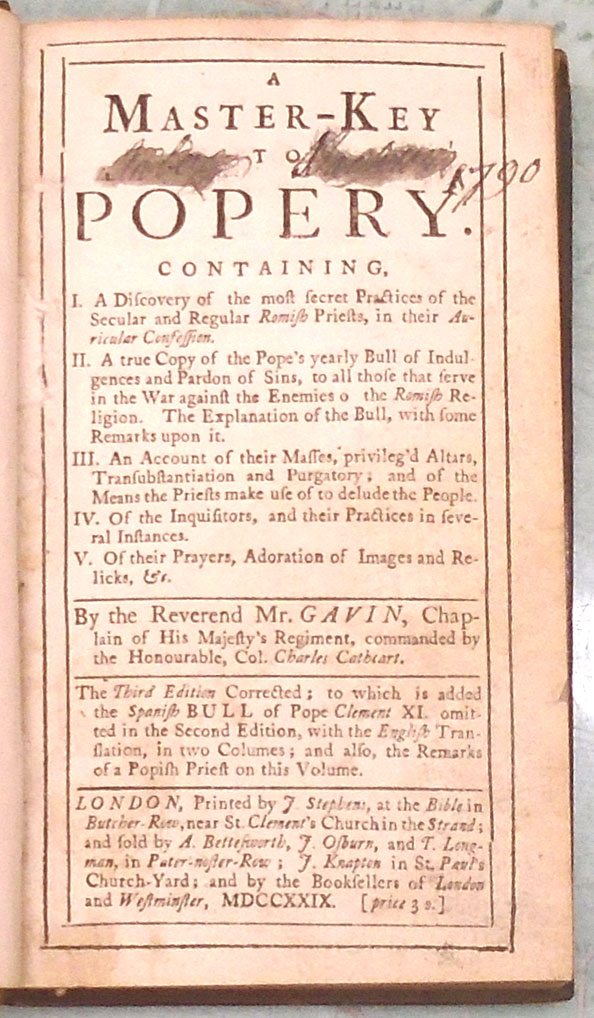 A
MASTER-KEY
TO
POPERY.
CONTAINING,
I. A Diſcovery of the moſt ſecret Practices of the
Secular and Regular Romiſh Prieſts, in their Au-
ricular Confeſſion.
II. A true Copy of the Pope's yearly Bull of Indul-
gences and Pardon of Sins, to all thoſe that ſerve
in the War againſt the Enemies o the Romiſh Re-
ligion. The Explanation of the Bull, with ſome
Remarks upon it.
III. An Account of their Maſſes, privileg'd Altars,
Tranſubſtantiation and Purgatory; and of the
Means the Prieſts make uſe of to delude the People.
IV. Of the Inquiſitors, and their Practices in ſeve-
ral Inſtances.
V. Of their Prayers, Adoration of Images and Re-
licks, &c.
By the Reverend Mr. GAVIN, Chap-
lain of His Majeſty's Regiment, commanded by
the Honourable, Col. Charles Cathcart.
The Third Edition Corrected; to which is added
the Spaniſh BULL of Pope Clement XI. omit-
ted in the Second Edition, with the Engliſh Tran-
ſlation, in two Columes; and alſo, the Remarks
of a Popiſh Prieſt on this Volume.
LONDON, Printed by J. Stephens, at the Bible in
Butcher-Row, near St. Clement's Church in the Strand;
and ſold by A. Betteſworth, J. Oſburn, and T. Long-
man, in Pater-noſter-Row; J. Knapton in St. Paul's
Church-Yard; and by the Bookſellers of London
and Weſtminſter, MDCCXXIX. [price 3 s.]
1790